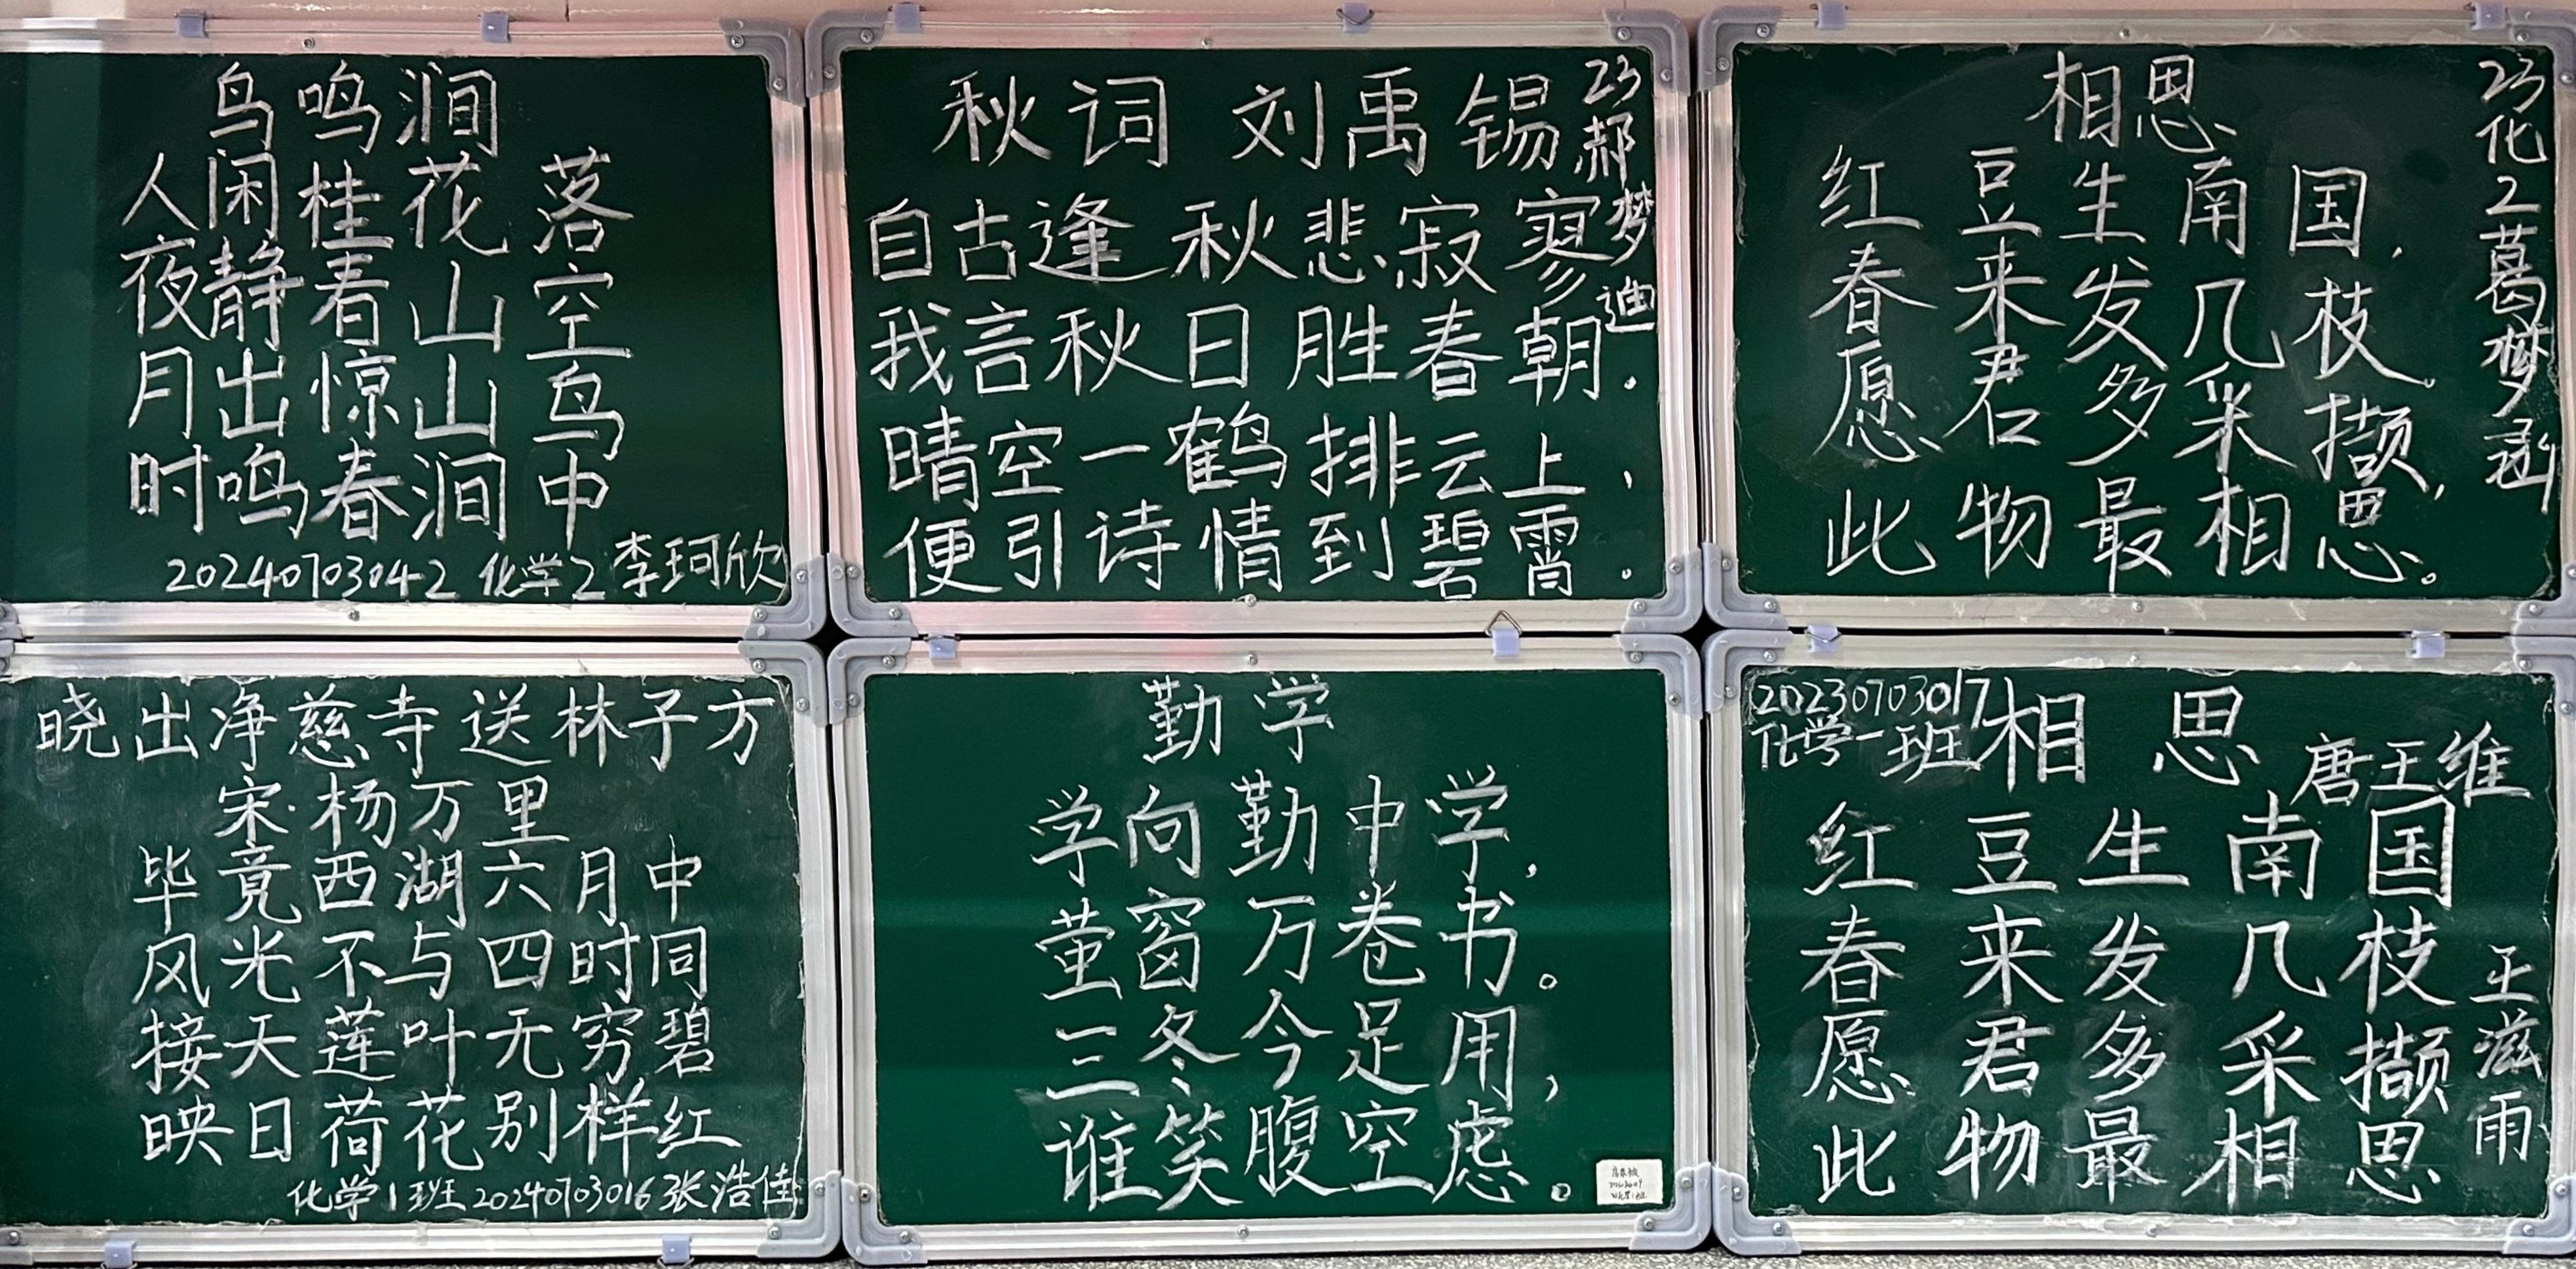 鸟鸣涧
人闲桂花落
夜静春山空
月出惊山鸟
时鸣春涧中
20240703042 化学2 李珂欣
秋词 刘禹锡
自古逢秋悲寂寥
我言秋日胜春朝.
晴空一鹤排云上,
便引诗情到碧霄.
23郝梦迪
相思
红豆生南国,
春来发几枝。
愿君多采撷,
此物最相思。
23化2葛梦函
晓出净慈寺送林子方
宋·杨万里
毕竟西湖六月中
风光不与四时同
接天莲叶无穷碧
映日荷花别样红
化学1班 20240703016 张浩佳
勤学
学向勤中学,
萤窗万卷书。
三冬今足用,
谁笑腹空虑。
20230703017
化学一班
相思
唐王维
红豆生南国
春来发几枝
愿君多采撷
此物最相思
王滋雨